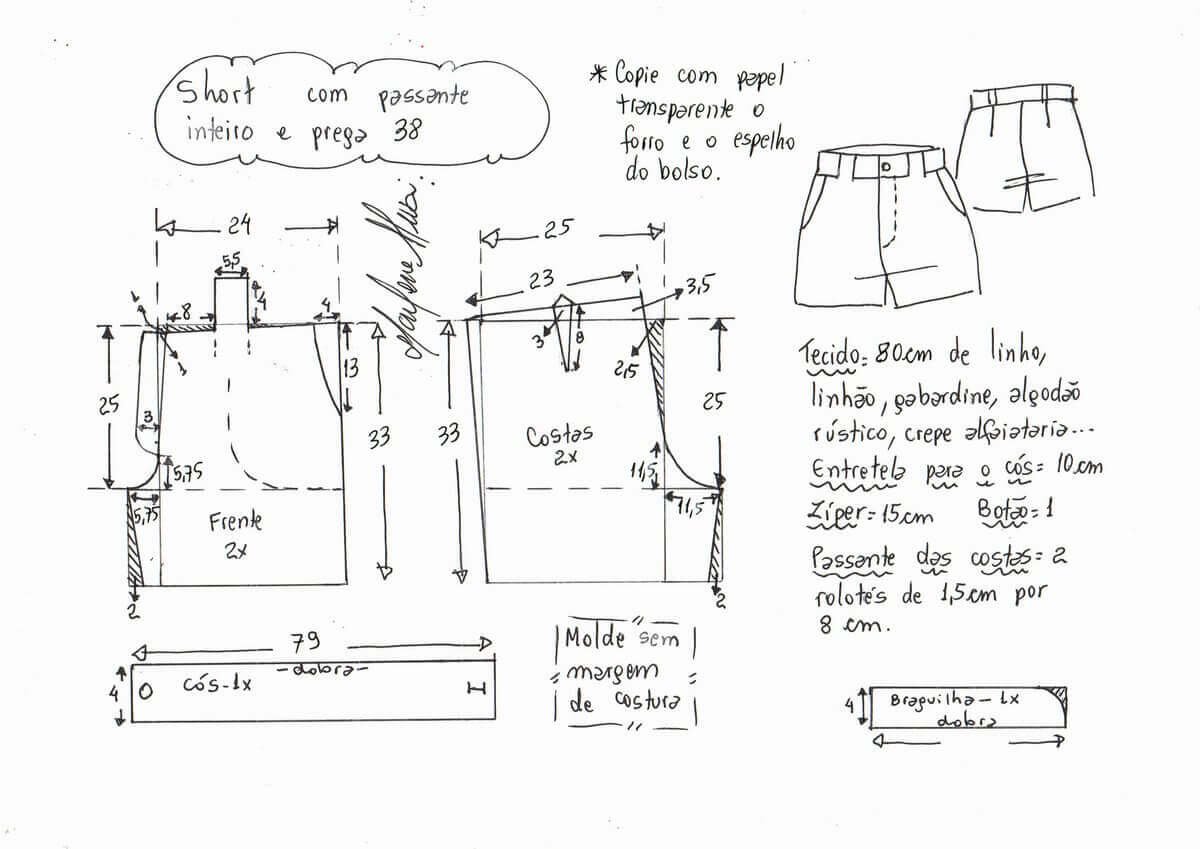 Short com passante
inteiro e prega 38
* Copie com papel
transparente o
forro e o espelho
do bolso.
24
5,5
4
8
4
1
1
13
25
3
33
5,75
5,75
Frente
2x
2
25
23
3,5
3
8
2,5
33
25
Costas
2x
11,5
11,5
2
Tecido: 80cm de linho,
linhão, gabardine, algodão
rústico, crepe alfaiataria...
Entretela para o cós= 10cm
Zíper=15cm Botão=1
Passante das costas=2
rolotés de 1,5cm por
8 cm.
79
-dobra-
4
cós-1x
Molde sem
margem
de costura
4
Braguilha-1x
dobra